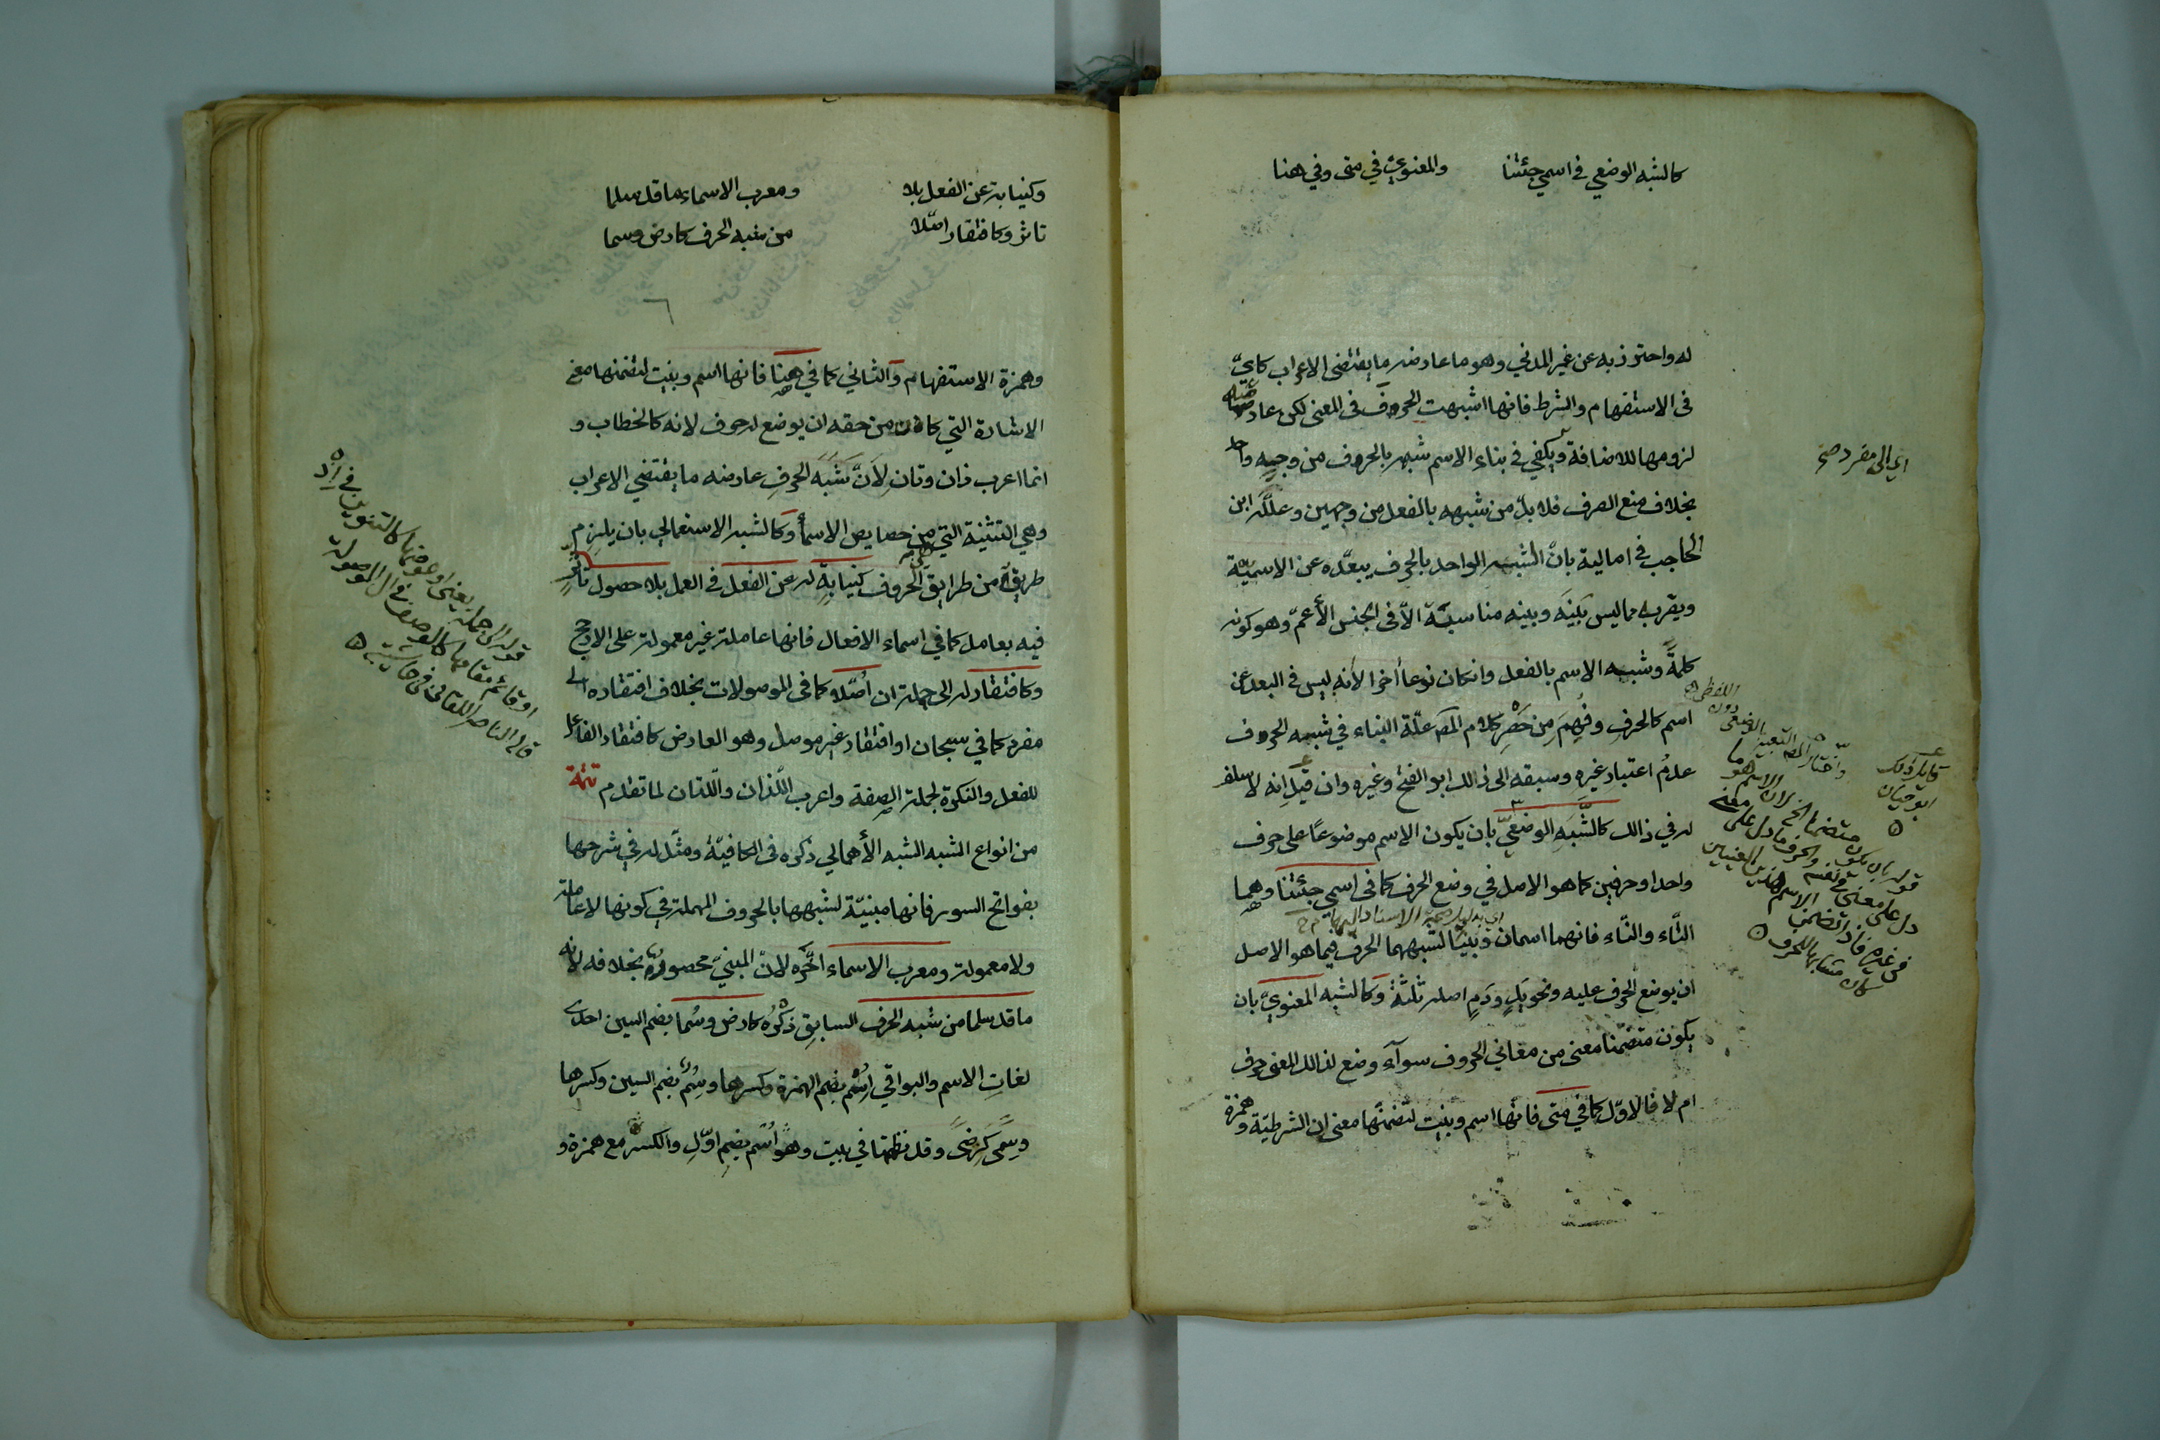 كالشبه الوضعي في اسمي جئتنا والمعنوي في متى وفي هنا
له واحترز به عن غير المدني وهو ما عارضه ما يقتضى الاعراب كايّ
فى الاستفهام والشرط فانها اشبهت الحروف فى المعنى لكن عارضه
لزومها للاضافة ويكفي في بناء الاسم شبهه بالحروف من وجهٍ واحد
بخلاف منع الصرف فلا بدّ من شبهه بالفعل من وجهين وعلّله ابن
الحاجب في اماليه بانّ الشبه الواحد بالحروف يبعّده عن الاسميّة
ويقربه مما ليس بَينَه وبينه مناسبة الّا فى الجنس الأعمّ وهو كونه
كلمةً وشبه الاسم بالفعل وان كان نوعا أخرا لأنه ليس في البعد عن
اسم كالحرفِ وفُهِمَ مِن حَصرِ كلام المص علّة البناء في شبه الحروف
عدمُ اعتبار غيره وسبقه الى ذالك ابو الفتح وغيره وان قيل انه لا سلف
له في ذالك كالشَّبَهِ الوضعيّ بان يكون الاسم موضوعًا على حرف
واحد او حرفين كما هو الاصل في وضع الحرف كما فى اسمي جئتنا وهما
اي بدليل صحة الاسناد اليهما
التّاء والنّاء فانهما اسمان وبنيا لشبههما الحرف فيما هو الاصل
ان يوضع الحرف عليه ونحو يَدٍ ودَمٍ اصله ثلثةٌ وكالشبه المعنويّ بان
يكون متضمّنا معنى من معاني الحروف سوآء وضع لذالك المعنى حرف
ام لا فالاوّل كما في متى فانها اسم وبنيت لتضمنها معنى ان الشرطيّة وهمزة
اي الى مفرد صح
واختار المص التعبير بالوضعى دون اللفظى
قايل ذلك
ابو حيان
وكنيابة عن الفعل بلا ومعرب الاسماء ما قد سلما
تاثر وكافتقار اصّلا من شبه الحرف كارض وسما
وهمزة الاستفهام والثاني كما في هنا فانها اسم وبنيت لتضمنها معنى
الاشارة التي كان من حقه ان يوضع له حرف لانه كالخطاب و
انما اعرب ذان وتان لِاَنَّ شَبَهَ الحرفِ عارضه ما يقتضي الاعراب
وهي التثنية التي من خصايص الاسمآ وكالشبه الاستعمالي بان يلزم
طريقة من طرايق الحروف كنيابةٍ له عن الفعل في العمل بلا حصول تأثّرٍ
فيه بعامل كما في اسماء الافعال فانها عاملة غير معمولة على الارجح
وكافتقار له الى جملة ان أُصّلا كما فى الموصولات بخلاف افتقاره الى
مفرد كما في سبحان او افتقار غير موصل وهو العارض كافتقار الفاعل
للفعل والنكرة لجملة الصفة واعرب اللّذان واللّتان لما تقدم تتمة
من انواع الشبه الشبه الأهمالي ذكره فى الكافية ومثّل له في شرحها
بفواتح السور فانها مبنيّة لشبهها بالحروف المهملة في كونها لا عاملة
ولا معمولة ومعرب الاسماء اخّره لانّ المبنيّ محصورٌ بخلافه لانه
ما قد سلما من شبه الحرف السابقِ ذكْرُه كارض وسُما بضم السين احدى
لغاتِ الاسم والبواقي اسم بضم الهمزة وكسرها وسُِم بضم السين وكسرها
وسِمًى كرِضىً وقد نظمتها في بيت وهو اُسْم بضمِ اوّلِ والكسر مع همزة و
قوله الى جملة يعنى او عوضها كالتنوين في اذ
او قائم مقامها كالوصف فى ال الموصولة
قاله الناصر اللقانى فى حاشيته